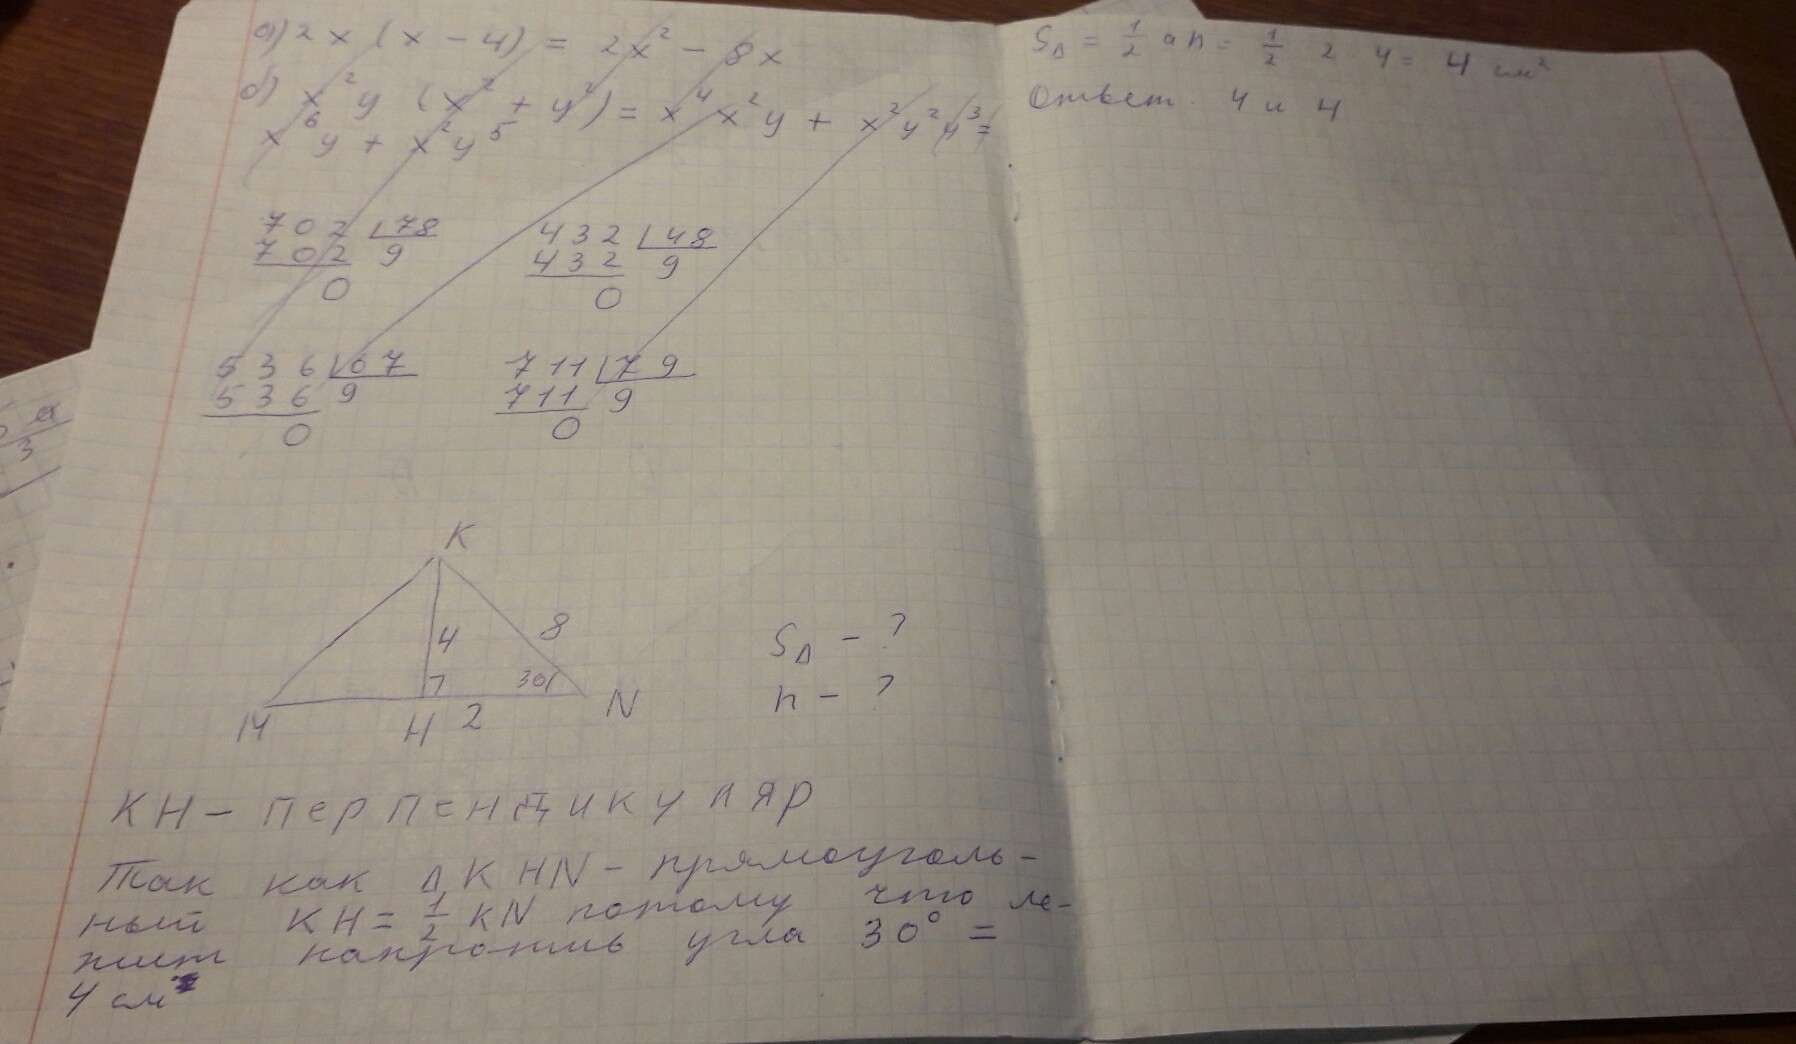 а) 2x (x - 4) = 2x² - 8x
б) x²y (x² + y²) = x⁴x²y + x²y²(y³=
x⁶y + x²y⁵
702 | 78
702 9
0
432 | 48
432 9
0
536 | 67
536 9
0
711 | 79
711 9
0
K
8
4
30
M H 2 N
S△ - ?
h - ?
KH - перпендикуляр
Так как △ KHN - прямоуголь-
ный KH = 1/2 KN потому что ле-
жит напротив угла 30° =
4 см
S△ = 1/2 ah = 1/2 2 4 = 4 см²
Ответ. 4 и 4
а
3